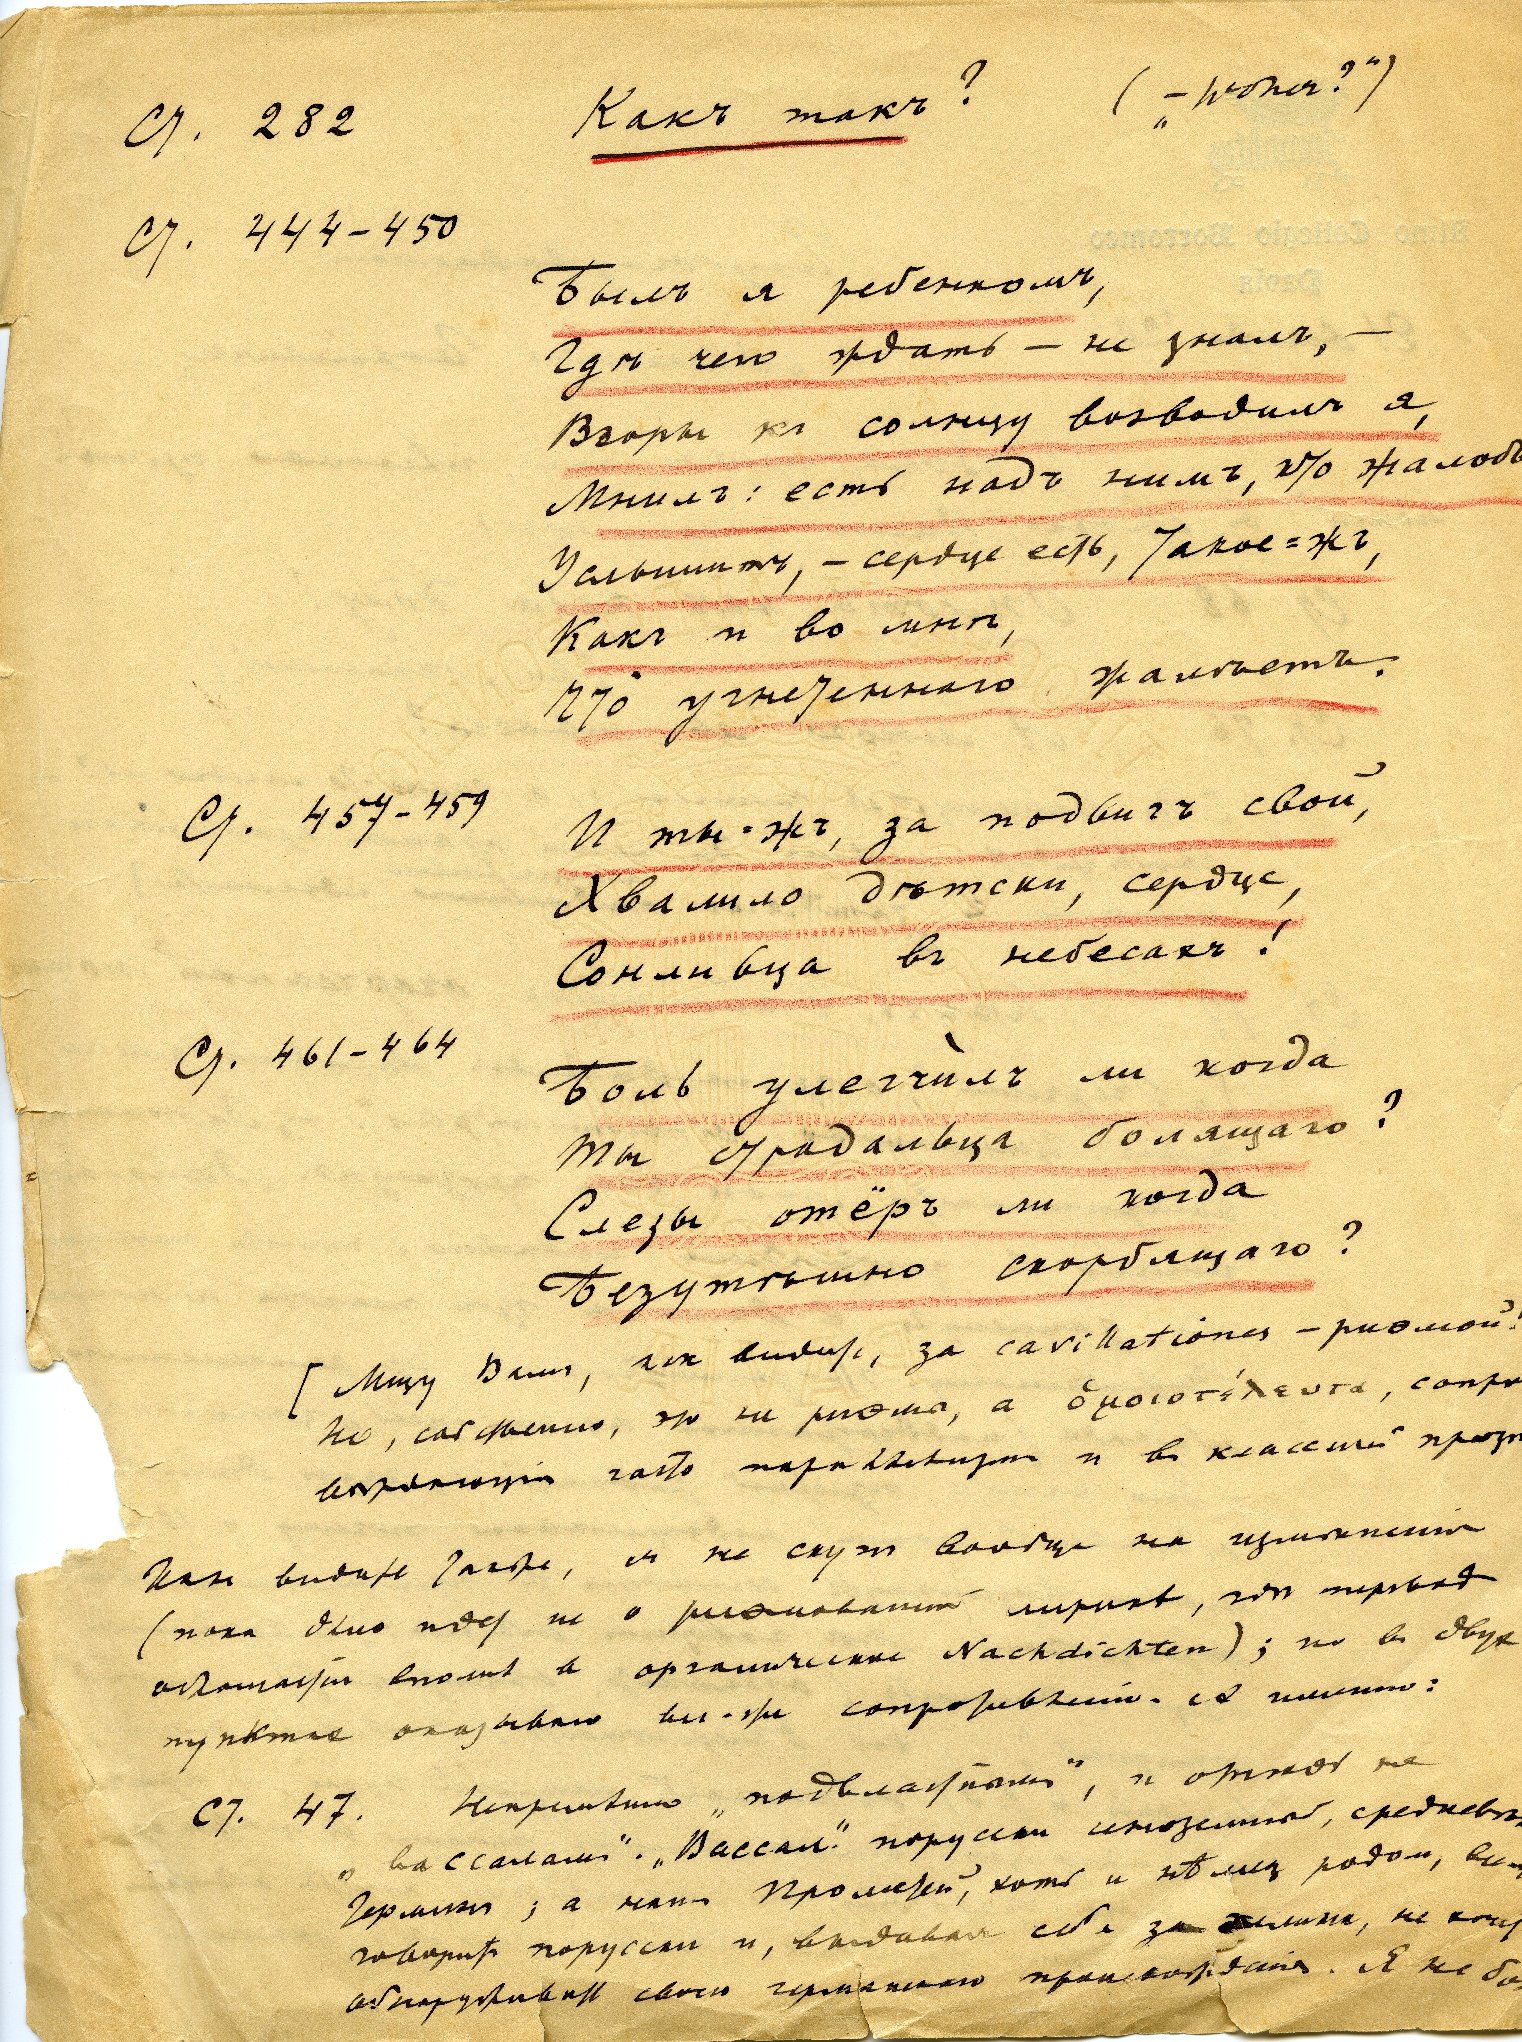 Ст. 282 Какъ такъ? („— woher?“)
Ст. 444–450
Былъ я ребенкомъ,
Гдѣ чего ждать — не зналъ, —
Взоры къ солнцу возводилъ я,
Мнилъ: есть надъ нимъ, кто жалобы
Услышитъ, — сердце есть, такое=жъ,
Какъ и во мнѣ,
Что угнетеннаго жалѣетъ.
Ст. 457–459
И ты=жъ, за подвигъ свой,
Хвалило дѣтски, сердце,
Сонливца въ небесахъ!
Ст. 461–464
Боль улегчилъ ли когда
Ты страдальца болящаго?
Слезы отёръ ли когда
Безутѣшно скорбящаго?
[Мщу Вамъ, какъ видите, за cavillationes — риѳмой!
Но, собственно, это не риѳма, а ὁμοιοτέλευτα, сопро
вождающія часто параллелизмъ и въ классической прозѣ
Какъ видите также, я не скупъ вообще на измѣненія
(пока дѣло идетъ не о риѳмованной лирикѣ, гдѣ переводъ
обращается вполнѣ въ органическое Nachdichten); но въ двухъ
пунктахъ оказываю все-же сопротивленіе. А именно:
Ст. 47. Непремѣнно „подвластными“, и отнюдь не
„вассалами“. „Вассал.“ порусски иноземный, средневѣк.
терминъ; а нашъ Прометей, хоть и нѣмецъ родом,
говоритъ порусски и, выдавая себя за эллина, не хочетъ
обнаруживать своего германскаго происхожденія. Я не